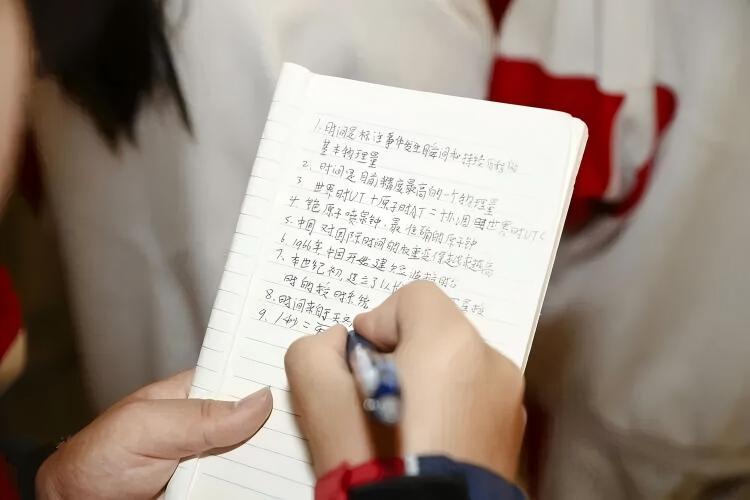 1. 时间是标注事件发生瞬间和持续历程的
基本物理量
2. 时间是目前精度最高的一个物理量
3. 世界时UT+原子时AT=协调世界时UTC
4. 铯原子喷泉钟,最准确的原子钟
5. 中国对国际时间的权重变得越来越高
6. 1966年,中国开始建
7. 本世纪初,建立了以
时的授时系统
8. 时间来自天文
9. 1秒=